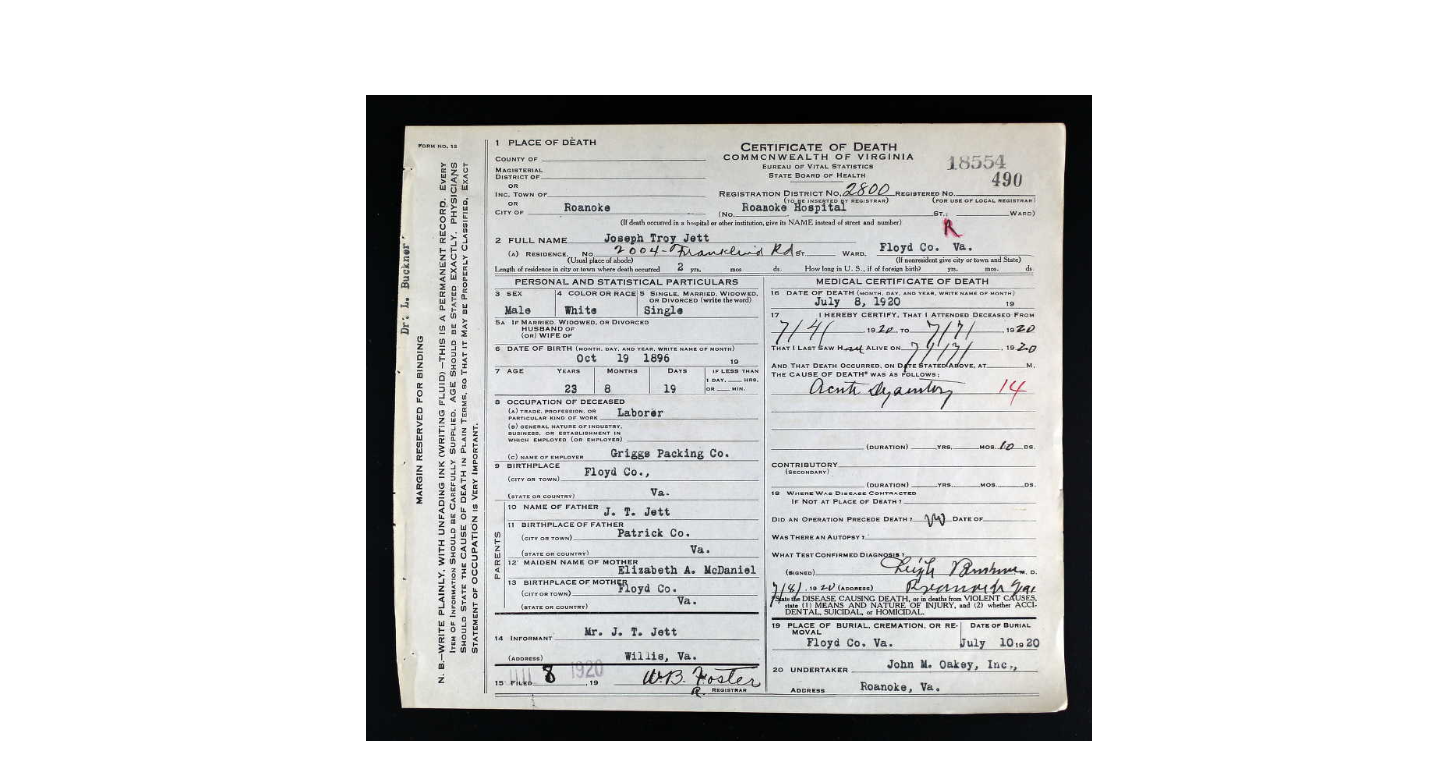 FORM NO. 12
Dr. L. Buckner
MARGIN RESERVED FOR BINDING
N. B.—WRITE PLAINLY, WITH UNFADING INK (WRITING FLUID)—THIS IS A PERMANENT RECORD. EVERY
ITEM OF INFORMATION SHOULD BE CAREFULLY SUPPLIED. AGE SHOULD BE STATED EXACTLY. PHYSICIANS
SHOULD STATE THE CAUSE OF DEATH IN PLAIN TERMS, SO THAT IT MAY BE PROPERLY CLASSIFIED. EXACT
STATEMENT OF OCCUPATION IS VERY IMPORTANT.
1 PLACE OF DEATH
COUNTY OF
MAGISTERIAL
DISTRICT OF
OR
INC. TOWN OF
OR
CITY OF Roanoke
CERTIFICATE OF DEATH
COMMONWEALTH OF VIRGINIA
BUREAU OF VITAL STATISTICS
STATE BOARD OF HEALTH
18554
490
REGISTRATION DISTRICT NO. 2800 REGISTERED NO.
(TO BE INSERTED BY REGISTRAR) (FOR USE OF LOCAL REGISTRAR)
(No. Roanoke Hospital ST.; WARD)
(If death occurred in a hospital or other institution, give its NAME instead of street and number)
R
2 FULL NAME Joseph Troy Jett
(A) RESIDENCE. No. 2004 - Franklin Rd ST. WARD. Floyd Co. Va.
(Usual place of abode) (If nonresident give city or town and State)
Length of residence in city or town where death occurred 2 yrs. mos ds. How long in U. S., if of foreign birth? yrs. mos. ds
PERSONAL AND STATISTICAL PARTICULARS
3 SEX Male
4 COLOR OR RACE White
5 SINGLE, MARRIED, WIDOWED,
OR DIVORCED (write the word)
Single
5A IF MARRIED, WIDOWED, OR DIVORCED
HUSBAND OF
(OR) WIFE OF
6 DATE OF BIRTH (MONTH, DAY, AND YEAR, WRITE NAME OF MONTH)
Oct 19 1896 19
7 AGE YEARS MONTHS DAYS IF LESS THAN
1 DAY, HRS.
23 8 19 OR MIN.
8 OCCUPATION OF DECEASED
(A) TRADE, PROFESSION, OR
PARTICULAR KIND OF WORK Laborer
(B) GENERAL NATURE OF INDUSTRY,
BUSINESS, OR ESTABLISHMENT IN
WHICH EMPLOYED (OR EMPLOYER)
(C) NAME OF EMPLOYER Griggs Packing Co.
9 BIRTHPLACE
(CITY OR TOWN) Floyd Co.,
(STATE OR COUNTRY) Va.
PARENTS
10 NAME OF FATHER J. T. Jett
11 BIRTHPLACE OF FATHER
(CITY OR TOWN) Patrick Co.
(STATE OR COUNTRY) Va.
12 MAIDEN NAME OF MOTHER
Elizabeth A. McDaniel
13 BIRTHPLACE OF MOTHER
(CITY OR TOWN) Floyd Co.
(STATE OR COUNTRY) Va.
14 INFORMANT Mr. J. T. Jett
(ADDRESS) Willis, Va.
15 FILED JUL 8 1920, 19 W.B. Foster
R. REGISTRAR
MEDICAL CERTIFICATE OF DEATH
16 DATE OF DEATH (MONTH, DAY, AND YEAR, WRITE NAME OF MONTH)
July 8, 1920 19
17 I HEREBY CERTIFY, THAT I ATTENDED DECEASED FROM
7/4/ 1920, TO 7/7/, 1920
THAT I LAST SAW H ALIVE ON 7/7/, 1920
AND THAT DEATH OCCURRED, ON DATE STATED ABOVE, AT M.
THE CAUSE OF DEATH* WAS AS FOLLOWS:
Acute Dysentery 14
(DURATION) YRS, MOS 10 DS.
CONTRIBUTORY
(SECONDARY)
(DURATION) YRS. MOS. DS.
18 WHERE WAS DISEASE CONTRACTED
IF NOT AT PLACE OF DEATH?
DID AN OPERATION PRECEDE DEATH? no DATE OF
WAS THERE AN AUTOPSY?
WHAT TEST CONFIRMED DIAGNOSIS?
(SIGNED) Leigh Buckner M. D.
7/8/, 1920 (ADDRESS) Roanoke Va
*State the DISEASE CAUSING DEATH, or in deaths from VIOLENT CAUSES,
state (1) MEANS AND NATURE OF INJURY, and (2) whether ACCI-
DENTAL, SUICIDAL, or HOMICIDAL.
19 PLACE OF BURIAL, CREMATION, OR RE-
MOVAL
DATE OF BURIAL
Floyd Co. Va. July 10 1920
20 UNDERTAKER John M. Oakey, Inc.,
ADDRESS Roanoke, Va.